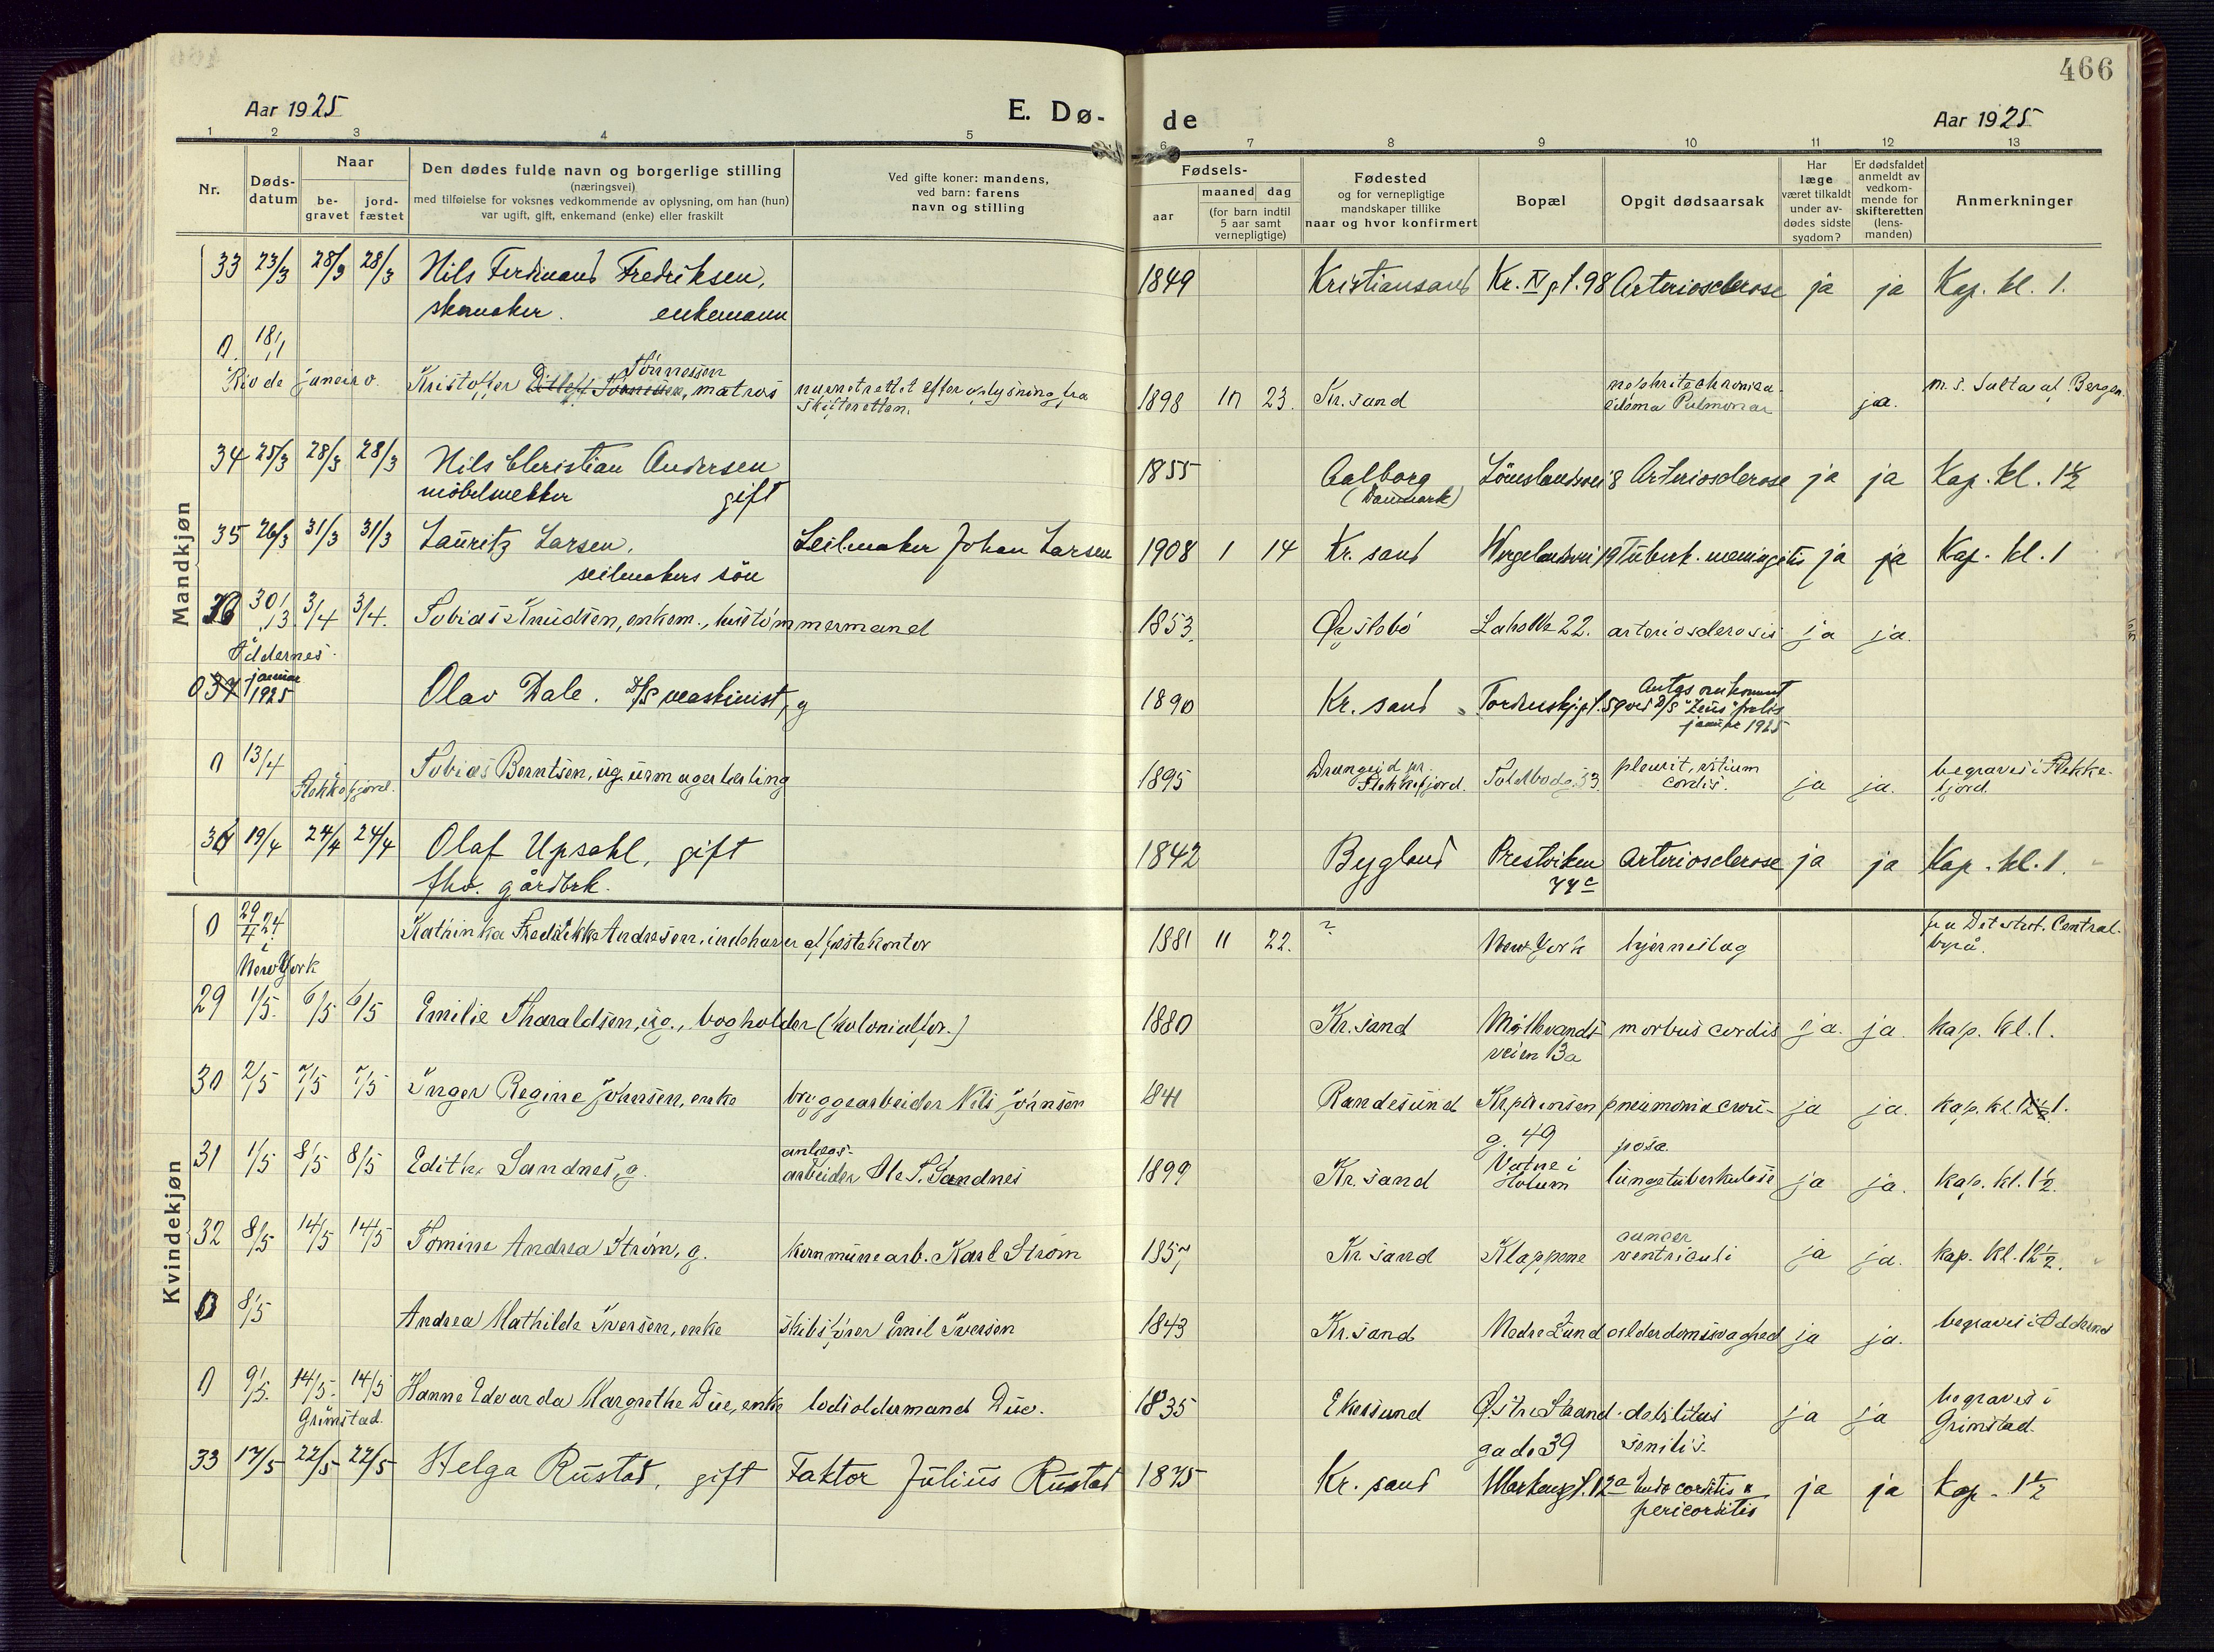 466
Aar 1925
E. Dø-
de
Aar 1925
1 2 3 4 5 6 7 8 9 10 11 12 13
Nr.
Døds-
datum
Naar
be-
gravet
jord-
fæstet
Den dødes fulde navn og borgerlige stilling
(næringsvei)
med tilføielse for voksnes vedkommende av oplysning, om han (hun)
var ugift, gift, enkemand (enke) eller fraskilt
Ved gifte koner: mandens,
ved barn: farens
navn og stilling
Fødsels-
aar
maaned dag
(for barn indtil
5 aar samt
vernepligtige)
Fødested
og for vernepligtige
mandskaper tillike
naar og hvor konfirmert
Bopæl
Opgit dødsaarsak
Har
læge
været tilkaldt
under av-
dødes sidste
sygdom?
Er dødsfaldet
anmeldt av
vedkom-
mende for
skifteretten
(lens-
manden)
Anmerkninger
Mandkjøn
33 23/3 28/3 28/3 Nils Ferdinand Fredriksen, 1849 Kristiansand Kr. IV gt. 98 Arteriosclerose ja ja Kap. kl. 1.
skomaker. enkemann
0. 18/1
Tönnessen
Rio de janeiro. Kristoffer Ditlef Tönnesen, matros navnet rettet efter oplysning fra 1898 10 23. Kr. sand nephrite chronica ja. m.s. Salta af Bergen.
skifteretten. edema Pulmonar
34 25/3 28/3 28/3 Nils Christian Andersen 1855 Aalborg Lömslandsvei 8 Arteriosclerose ja ja Kap. kl. 1 1/2
möbelsnekker gift (Danmark)
35 26/3 31/3 31/3 Lauritz Larsen, Seilmaker Johan Larsen 1908 1 14 Kr. sand Wergelandsvei 19 Tuberk. meningitis ja ja Kap. kl. 1
seilmakers sön
36 30/3 3/4 3/4. Tobias Knudsen, enkem., hustömmermand 1853. Øistebö Laholla 22. arteriosclerosis ja ja.
Oddernes.
0 37 januar Olav Dale. D/S maskinist, g 1890 Kr. sand Tordenskj.gt. 59 Antas omkommet
1925 ved D/S "Zeus" forlis
januar 1925
0 13/4 Tobias Berntsen, ug. urmagerlærling 1895 Drangeid pr. Toldbodg. 53. pleurit, vitium ja ja. begraves i Flekke-
Flekkefjord. Flekkefjord. cordis. fjord.
36 19/4 24/4 24/4 Olaf Upsahl, gift 1842 Bygland Prestviken Arteriosclerose ja ja Kap. kl. 1.
fhv. gårdbrk. 77c
Kvindekjøn
0 29/4 24 Kathinka Fredrikke Andresen, indehaver af fæstekontor 1881 11 22. ? New York hjerneslag fra Det stat. Central-
i byrå.
New York
29 1/5. 6/5 6/5 Emilie Tharaldsen, ug., bogholder (kolonialfor.) 1880 Kr. sand Möllevands- morbus cordis ja. ja. kap. kl. 1.
veien 13a
30 2/5 7/5 7/5 Inger Regine Johnsen, enke bryggearbeider Nils Johnsen 1841 Randesund Kr.p.hensen pneumonia crou- ja ja. kap. kl. 12 1/2 1.
g. 49 posa.
31 1/5 8/5 8/5 Edithe Sandnes, g. anlægs- 1899 Kr. sand Vatne i lungetuberkulose ja ja. kap. kl. 1 1/2.
arbeider Ole T. Sandnes Holum
32 8/5 14/5 14/5 Tomine Andrea Ström, g. kommunearb. Karl Ström 1857 Kr. sand Klappene cancer ja ja. kap. kl. 12 1/2.
ventriculi
0 8/5 Andrea Mathilde Iversen, enke skibsförer Emil Iversen 1843 Kr. sand Nedre Lund alderdomssvaghed ja ja. begraves i Oddernes
0 9/5. 14/5. 14/5 Hanne Edvarda Margrethe Due, enke lodsoldermand Due. 1835 Ekersund Østre Strand- debilitas ja ja begraves i
Grimstad. gade 39 senilis. Grimstad.
33 17/5 22/5 22/5 Helga Rustad, gift Faktor Julius Rustad 1875 Kr. sand Markensgt. 12a Endo corditis & ja ja Kap. 1 1/2
pericorditis